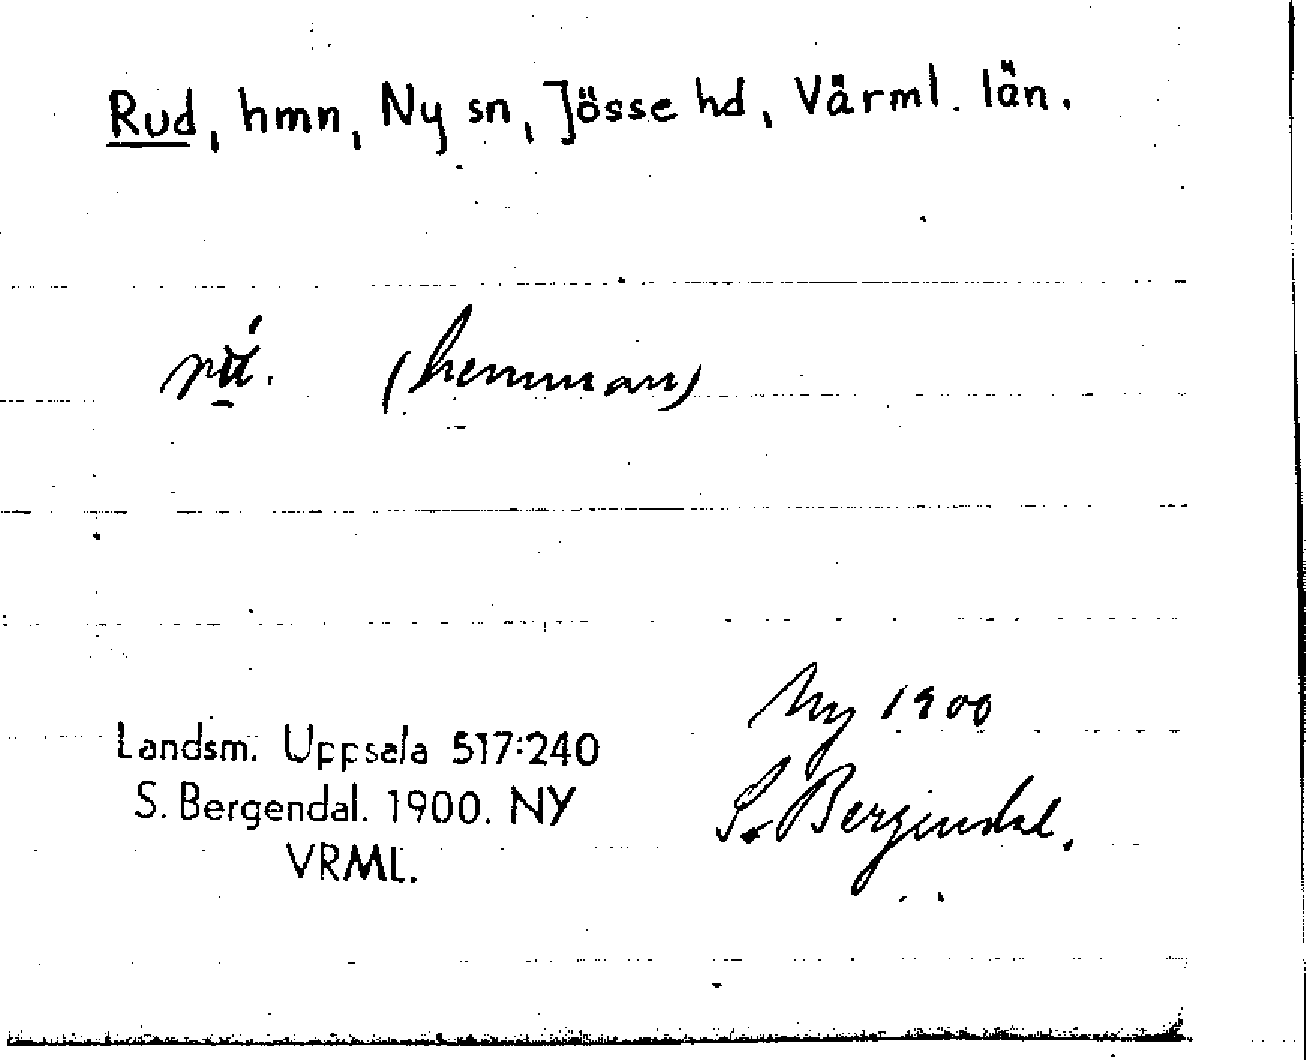 Rud, hmn, Ny sn, Jösse hd, Värml. län.
(hemman)
Ny 1900
Landsm. Uppsala 517:240
S. Bergendal. 1900. NY
VRML.
S. Bergendal.